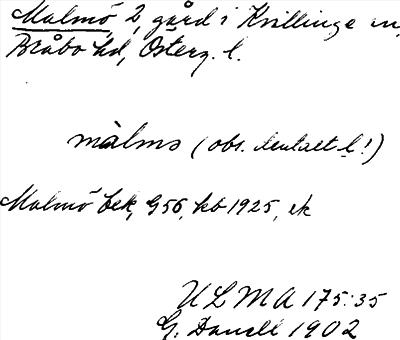 Malmö 2, gård i Kvillinge sn,
Bråbo hd, Österg. l.
màlmo (obs. dentalt l!)
Malmö bek, G56, kb 1925, ek
ULMA 175:35
G. Danell 1902